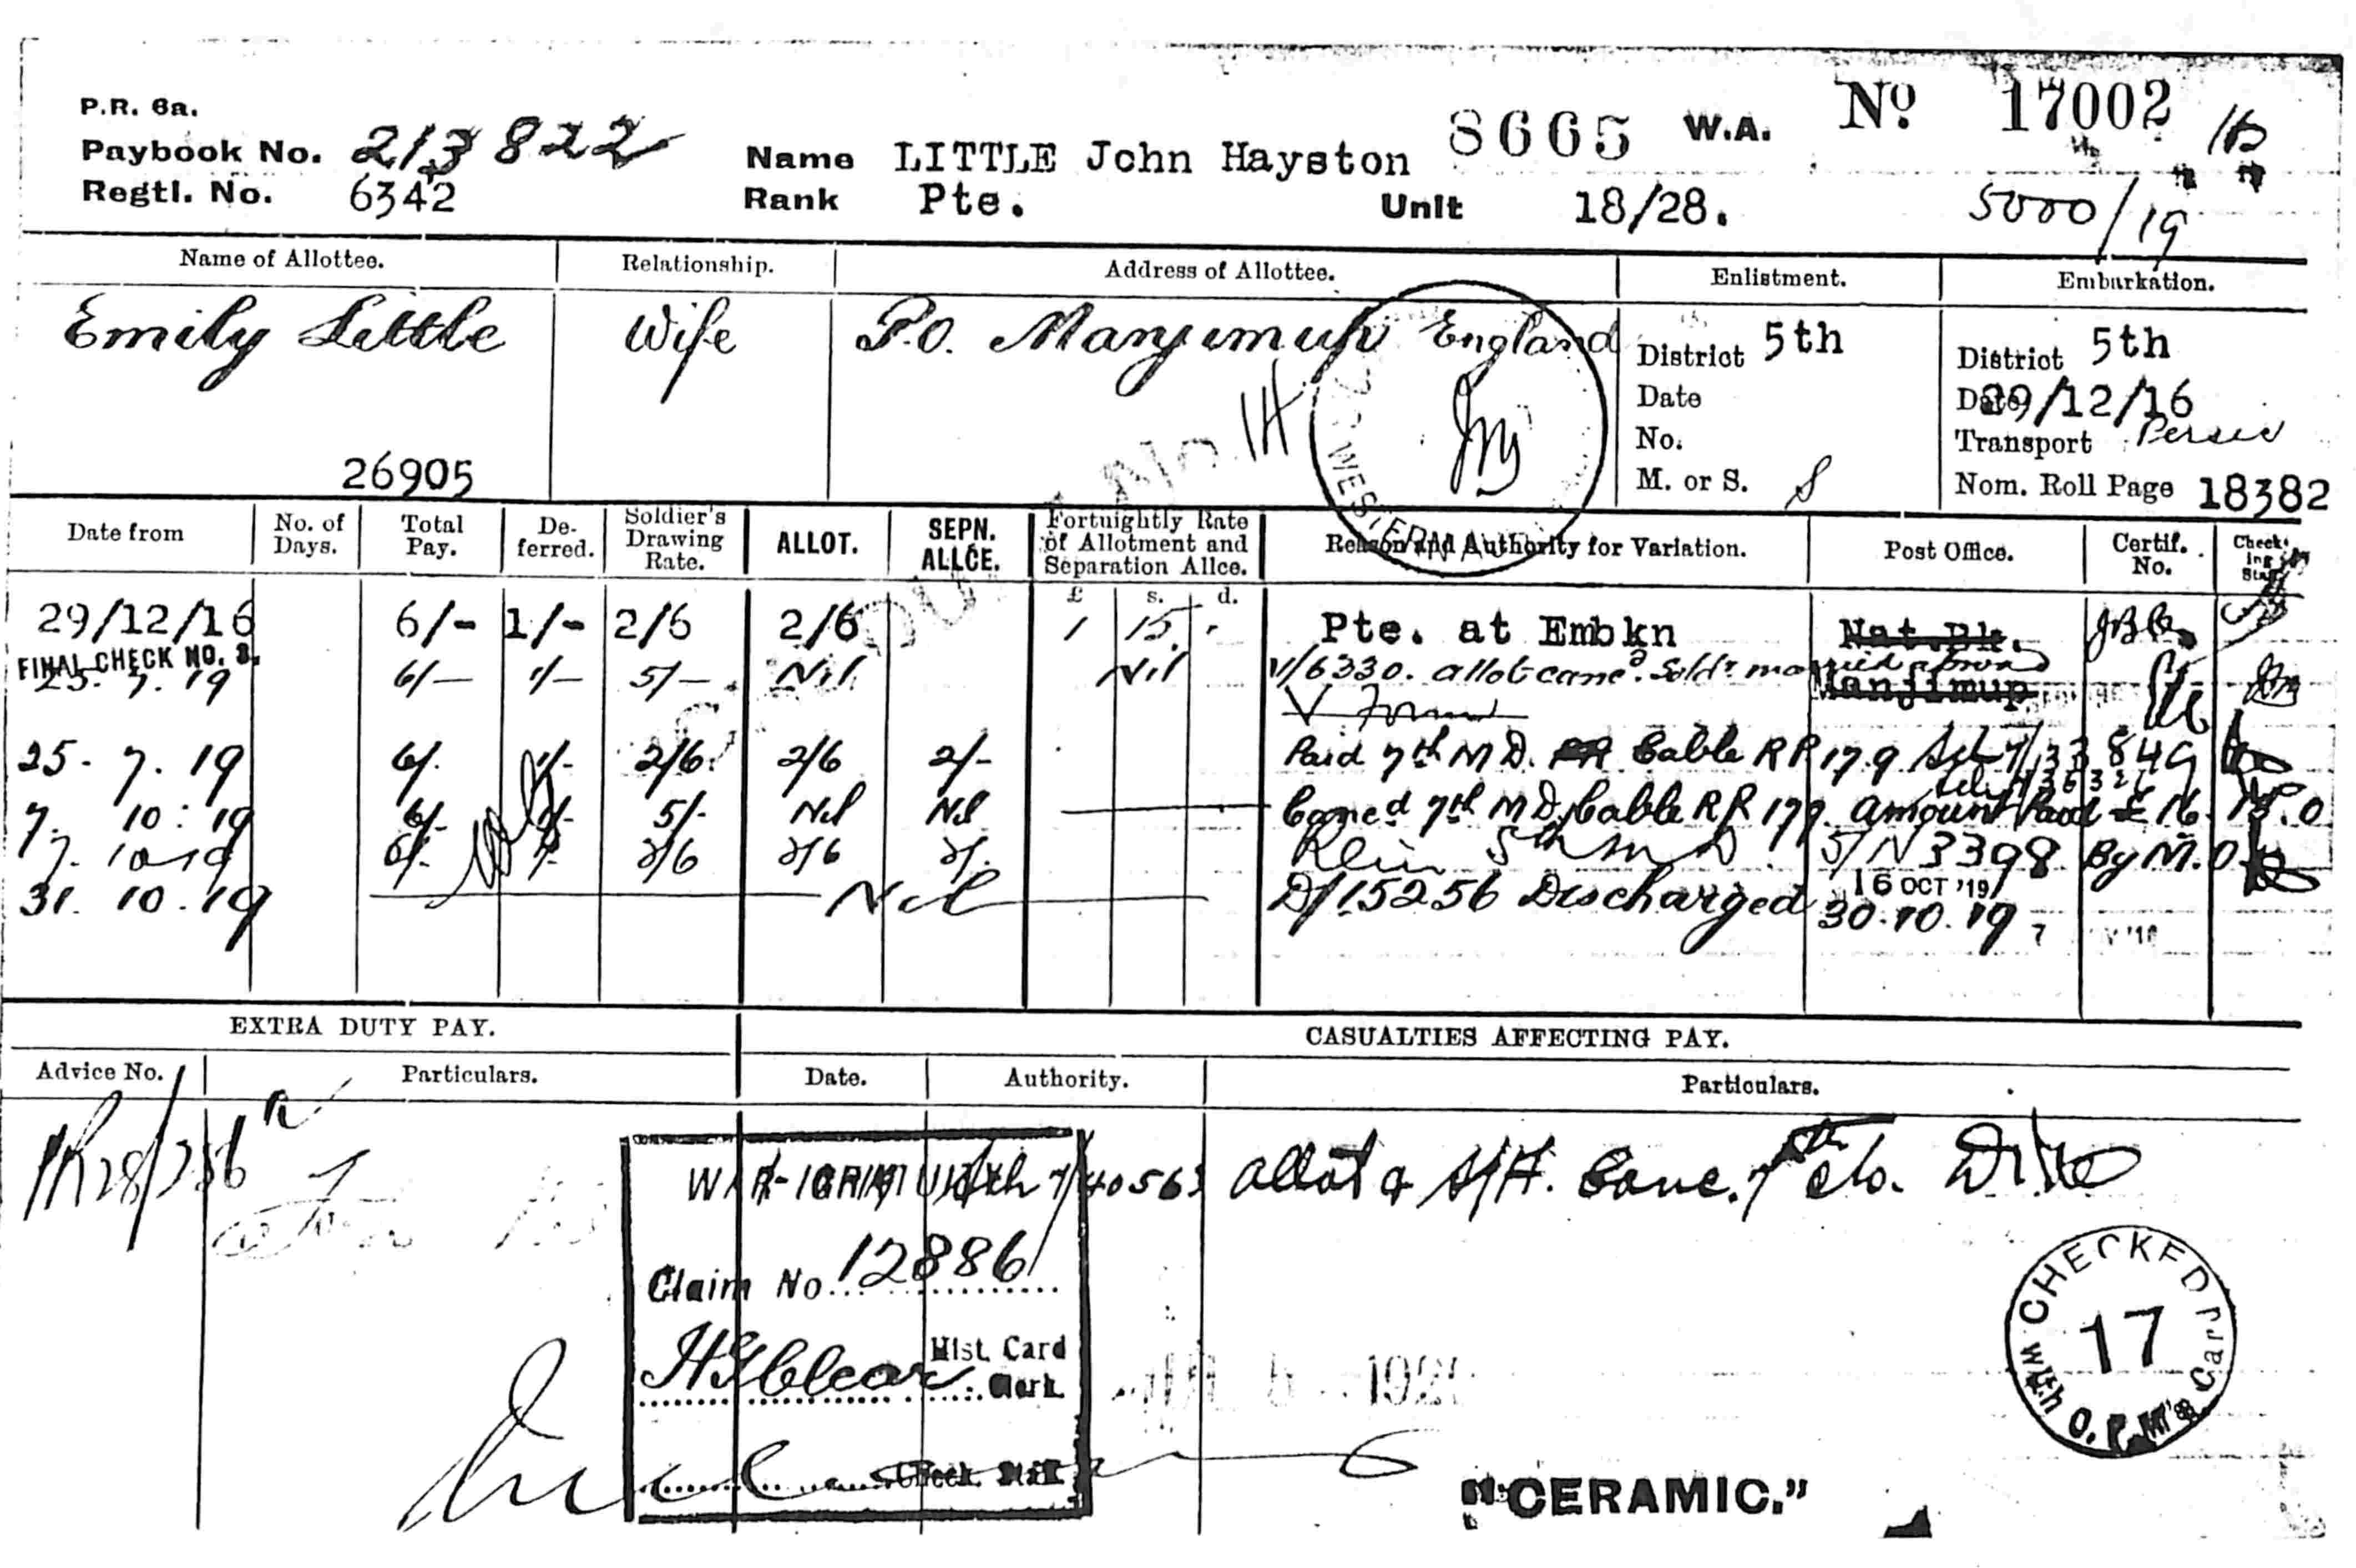 P.R. 6a.
Paybook No. 213822
Regtl. No. 6342
Name LITTLE John Hayston 8665 W.A. No 17002
Rank Pte. Unit 18/28. 5000/19
Name of Allottee. Relationship. Address of Allottee. Enlistment. Embarkation.
Emily Little Wife P.O. Manjimup England
District 5th District 5th
Date Date 29/12/16
No. Transport Persic
M. or S. S Nom. Roll Page 18382
26905
WESTERN
Date from No. of Days. Total Pay. Deferred. Soldier's Drawing Rate. ALLOT. SEPN. ALLCE. Fortnightly Rate of Allotment and Separation Allce. Reason and Authority for Variation. Post Office. Certif. No. Checking Staff
£ s. d.
29/12/16 6/- 1/- 2/6 2/6 1 15 Pte. at Embkn Nat.Bk.
FINAL CHECK NO. 3.
25. 7. 19 6/- 1/- 5/- Nil Nil V/6330. allot canc. Soldr married abroad Manjimup
V Form
25. 7. 19 6/. 1/- 2/6 2/6 2/- Paid 7th M D. Cable RR 179
7. 10. 19 6/. 5/- Nil Nil Canc'd 7th M D. Cable RR 179. Amount Paid £16. 15. 0
7. 10 19 6/. 2/6 2/6 2/. Rein 5th M D S/N 3398 By M. O
16 OCT '19
31. 10. 19 Nil D/15256 Discharged 30.10.19
EXTRA DUTY PAY. CASUALTIES AFFECTING PAY.
Advice No. Particulars. Date. Authority. Particulars.
7/40563 allot & S/A. Canc. 7th
Claim No. 12886
Hist. Card Clerk
Check. Staff
CHECKED With O.P.M's Card
17
"CERAMIC."